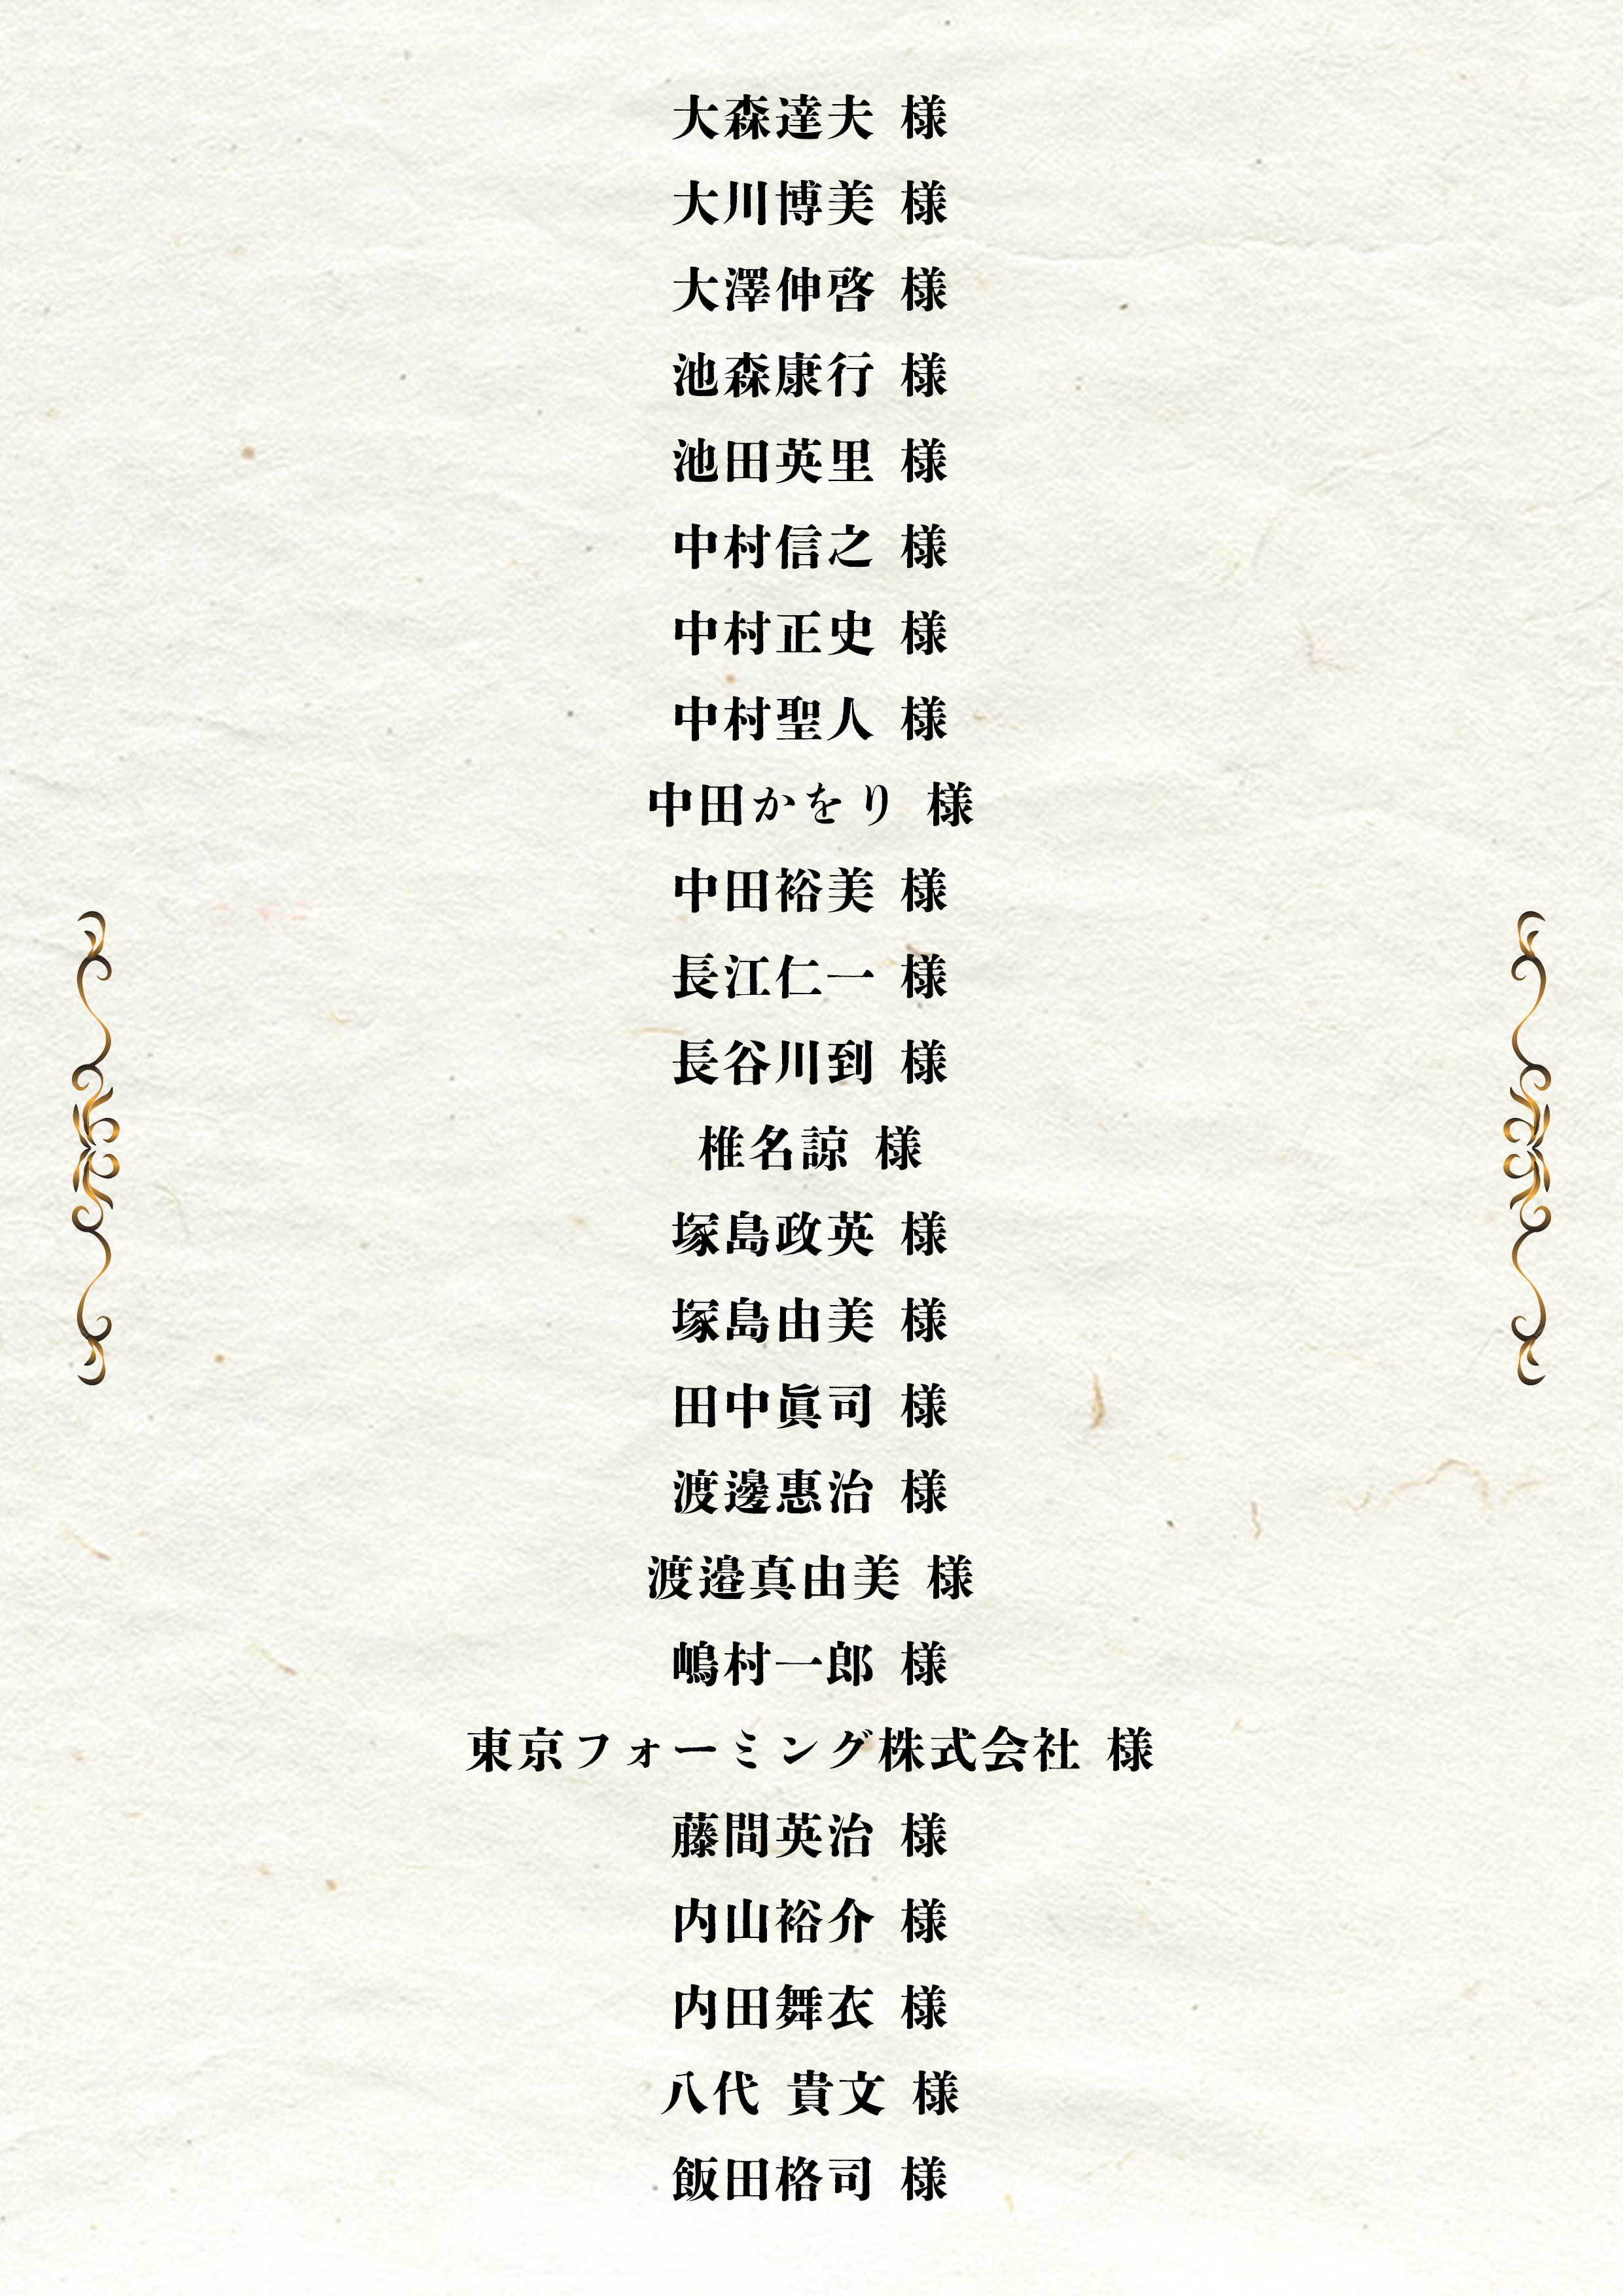 大森達夫 様
大川博美 様
大澤伸啓 様
池森康行 様
池田英里 様
中村信之 様
中村正史 様
中村聖人 様
中田かをり 様
中田裕美 様
長江仁一 様
長谷川到 様
椎名諒 様
塚島政英 様
塚島由美 様
田中眞司 様
渡邊惠治 様
渡邉真由美 様
嶋村一郎 様
東京フォーミング株式会社 様
藤間英治 様
内山裕介 様
内田舞衣 様
八代 貴文 様
飯田格司 様